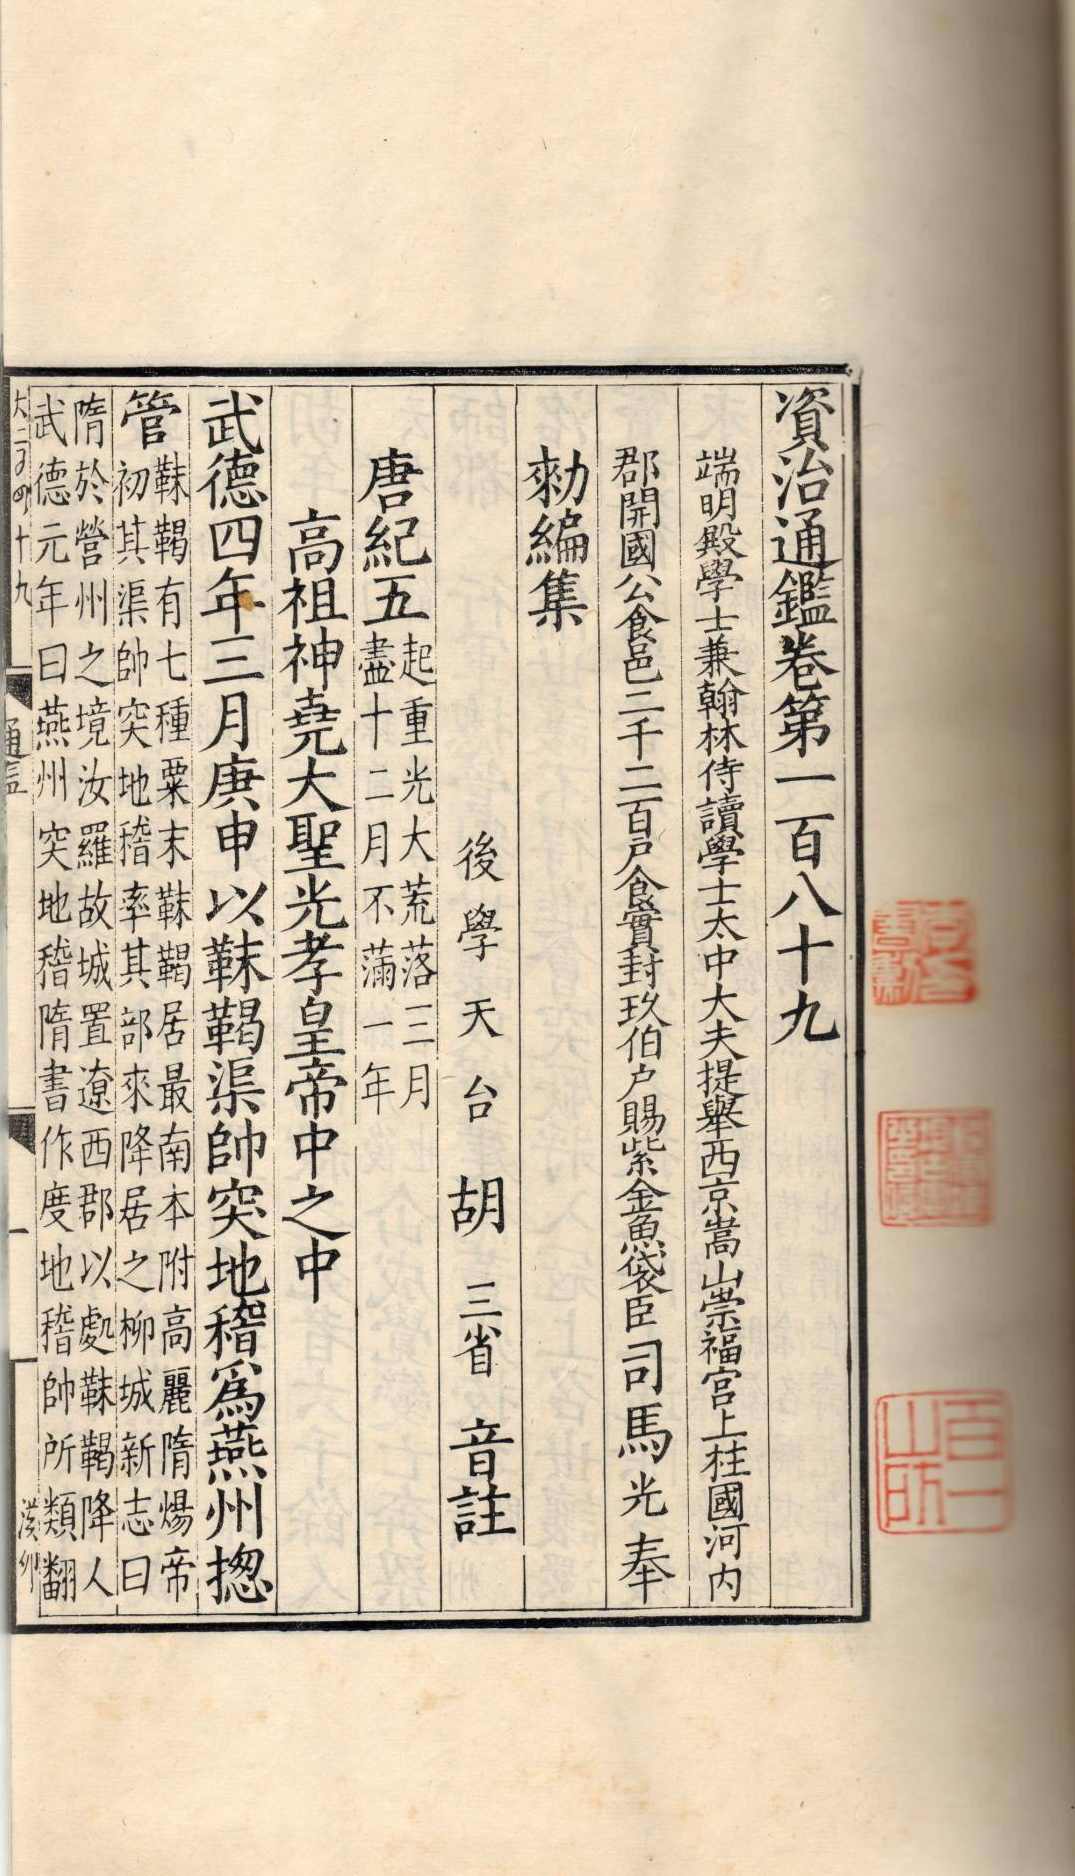 資治通鑑卷第一百八十九
端明殿學士兼翰林侍讀學士太中大夫提舉西京嵩山崇福宮上柱國河內
郡開國公食邑二千二百戶食實封玖伯戶賜紫金魚袋臣司馬光奉
勑編集
後學天台胡三省音註
唐紀五起重光大荒落三月
盡十二月不滿一年
高祖神堯大聖光孝皇帝中之中
武德四年三月庚申以靺鞨渠帥突地稽爲燕州揔
管靺鞨有七種粟末靺鞨居最南本附高麗隋煬帝
初其渠帥突地稽率其部來降居之柳城新志曰
隋於營州之境汝羅故城置遼西郡以處靺鞨降人
武德元年曰燕州突地稽隋書作度地稽帥所類翻
十九
通鑑
一
百一
山房